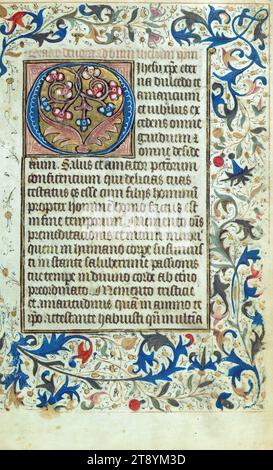 O ihesu xpe eter
na dulcedo te
amancium
et iubilus ex
cedens omne
gaudium et
omne deside
rium. Salus et amator pctorum
qui delicias tuas
testatus es esse cum filijs hominum
propter hominem homo factus es
in fine temporum. Memento
premeditacionis et
quem in humano corpe sustinuisti
instante saluberrime passionis
tue tempore in diuino corde ab eterno
preordinato. Memento tristicie
et amaritudinis quam in animo te
ipo attestante habuisti qn
alamy
Image ID: 2T8YM3D
www.alamy.com